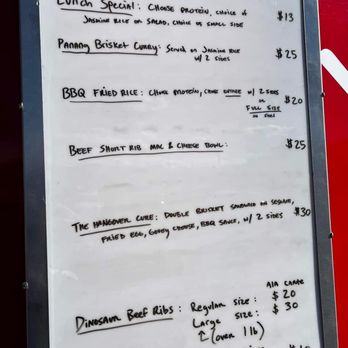 Lunch Special: Choose Protein, Choice of $13
Jasmine Rice or Salad, Choice of Small Side
Panang Brisket Curry: Served on Jasmine Rice $25
w/ 2 sides
BBQ Fried Rice: Choose Protein, Choose w/ 2 sides $20
or
Full Size
no sides
Beef Short Rib Mac & Cheese Bowl: $25
The Hangover Cure: Double Brisket Sandwich on Sesame, $30
Fried Egg, Gooey Cheese, BBQ Sauce, w/ 2 sides
Ala Carte
Dinosaur Beef Ribs: Regular Size: $20
Large Size: $30
(over 1 lb)